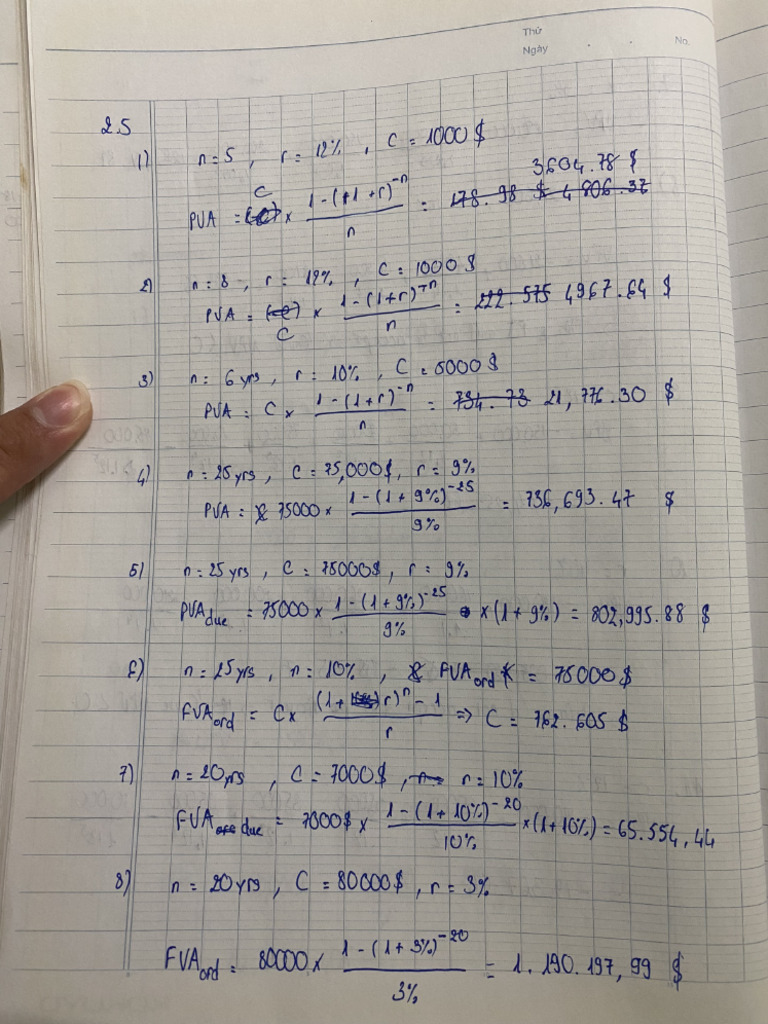 Thứ
Ngày . . No.
2.5
1) n = 5 , r = 12% , C = 1000 $
3604.78 $
C
PVA = (-C) × (1 - (1 + r)^-n) / n = 178.98 $ 4806.37
2) n = 8 , r = 12% , C = 1000 $
PVA = (-C) × (1 - (1 + r)^-n) / n = 222.575 4967.64 $
C
3) n = 6 yrs , r = 10% , C = 5000 $
PVA = C × (1 - (1 + r)^-n) / n = 734.73 21,776.30 $
4) n = 25 yrs , C = 75,000 $ , r = 9%
PVA = 75000 × (1 - (1 + 9%)^-25) / 9% = 736,693.47 $
5) n = 25 yrs , C = 75000 $ , r = 9%
PVA due = 75000 × (1 - (1 + 9%)^-25) / 9% × (1 + 9%) = 802,995.88 $
6) n = 25 yrs , n = 10% , FVA ord = 75000 $
FVA ord = C × ((1 + r)^n - 1) / r => C = 762.605 $
7) n = 20 yrs , C = 7000 $ , r = 10%
FVA due = 7000 $ × (1 - (1 + 10%)^-20) / 10% × (1 + 10%) = 65.554,44
8) n = 20 yrs , C = 80000 $ , r = 3%
FVA ord = 80000 × (1 - (1 + 3%)^-20) / 3% = 1.190.197,99 $